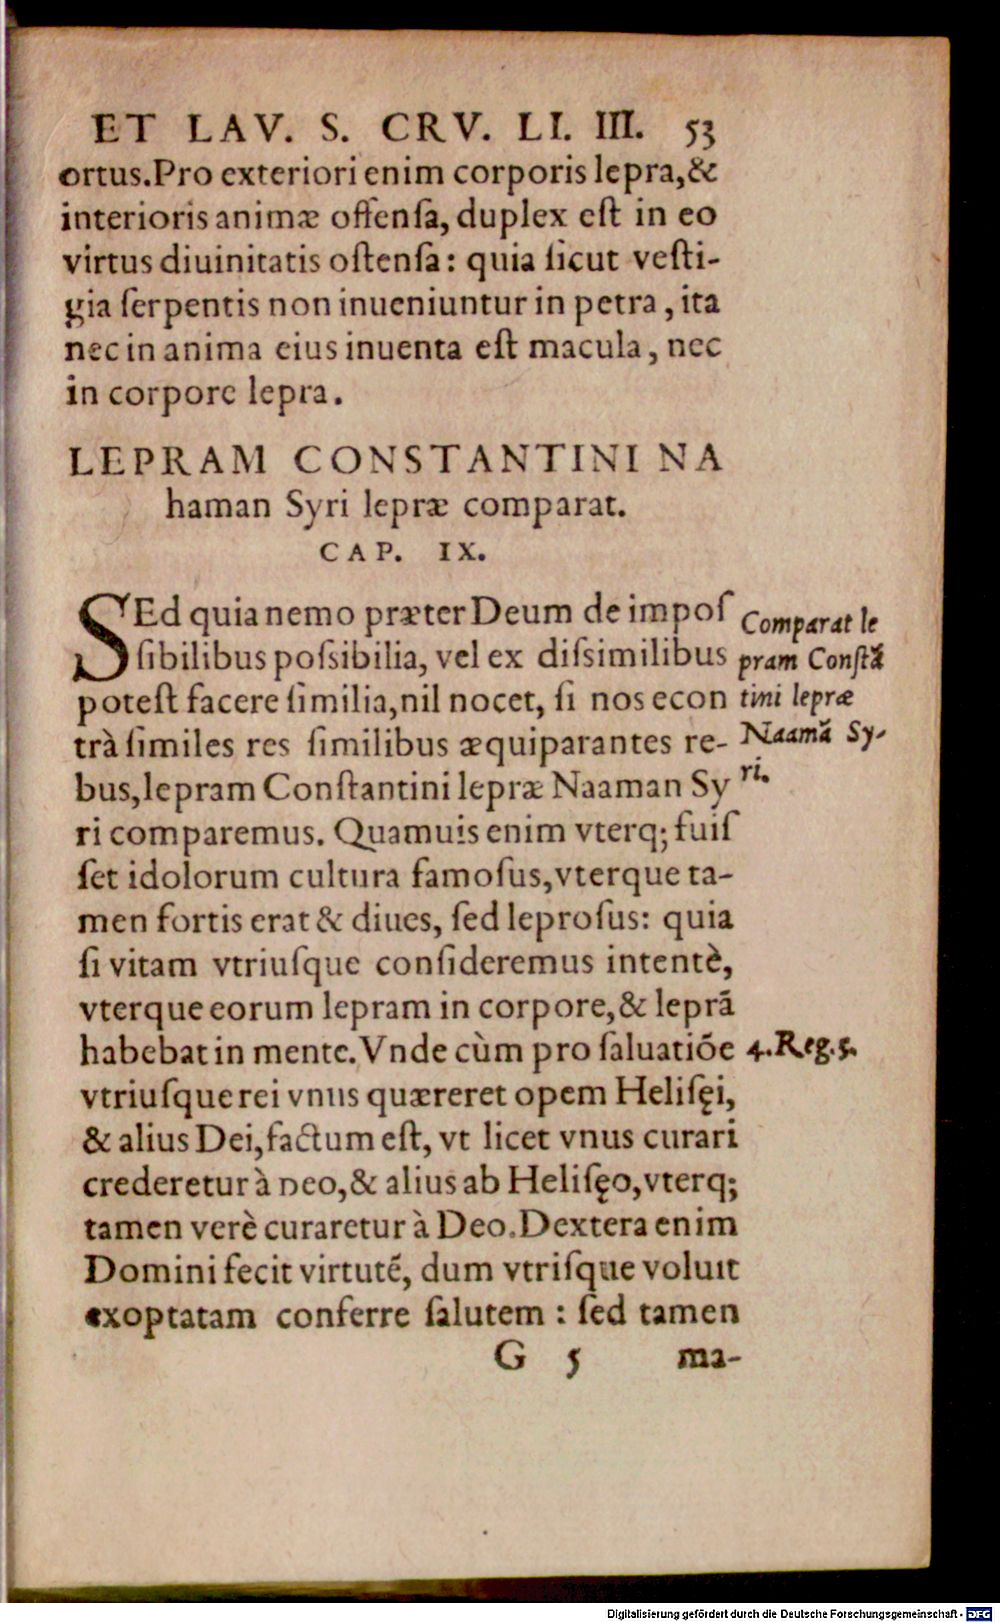 ET LAV. S. CRV. LI. III. 53
ortus.Pro exteriori enim corporis lepra,&
interioris animæ offenſa, duplex eſt in eo
virtus diuinitatis oſtenſa: quia ſicut veſti-
gia ſerpentis non inueniuntur in petra, ita
nec in anima eius inuenta eſt macula, nec
in corpore lepra.
LEPRAM CONSTANTINI NA
haman Syri lepræ comparat.
CAP. IX.
SEd quia nemo præter Deum de impoſ
ſibilibus poſsibilia, vel ex diſsimilibus
poteſt facere ſimilia, nil nocet, ſi nos econ
trà ſimiles res ſimilibus æquiparantes re-
bus, lepram Conſtantini lepræ Naaman Sy
ri comparemus. Quamuis enim vterq; fuiſ
ſet idolorum cultura famoſus, vterque ta-
men fortis erat & diues, ſed leproſus: quia
ſi vitam vtriuſque conſideremus intentè,
vterque eorum lepram in corpore, & leprã
habebat in mente. Vnde cùm pro ſaluatiõe
vtriuſque rei vnus quæreret opem Heliſęi,
& alius Dei, factum eſt, vt licet vnus curari
crederetur à Deo, & alius ab Heliſęo, vterq;
tamen verè curaretur à Deo. Dextera enim
Domini fecit virtutẽ, dum vtriſque voluit
exoptatam conferre ſalutem : ſed tamen
G 5 ma-
Comparat le
pram Conſtã
tini lepræ
Naamã Sy-
ri.
4. Reg. 5.
Digitalisierung gefördert durch die Deutsche Forschungsgemeinschaft - DFG